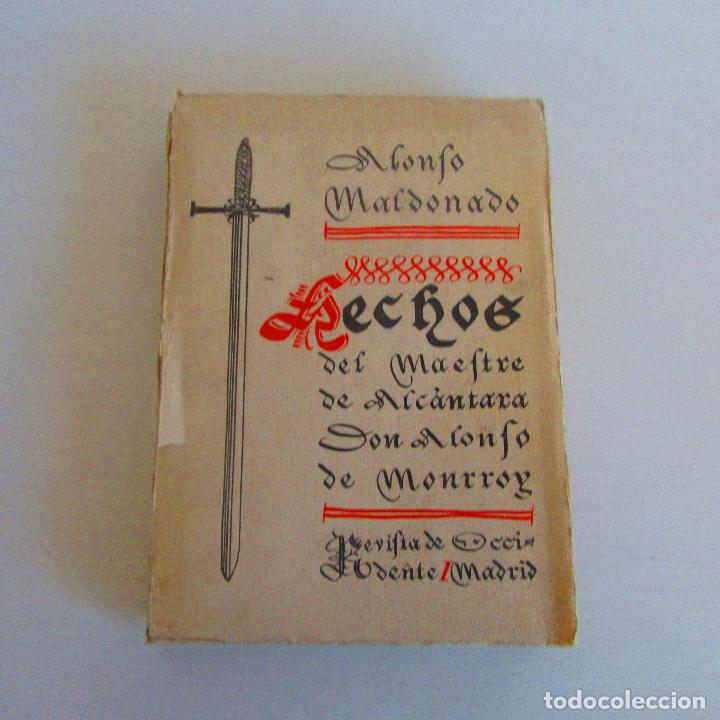 Alonso
Maldonado
Hechos
del Maestre
de Alcàntara
Don Alonso
de Monrroy
Revista de Occi-
dente/Madrid
todocoleccion